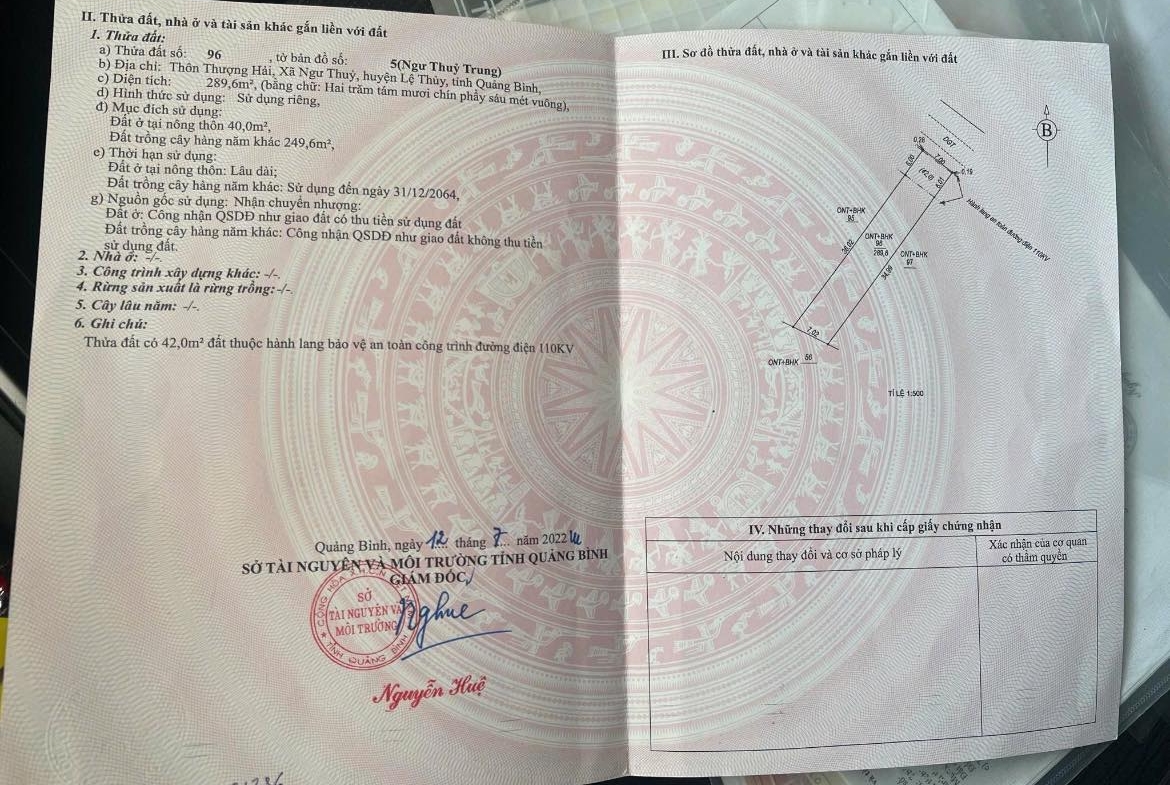 II. Thửa đất, nhà ở và tài sản khác gắn liền với đất
1. Thửa đất:
a) Thửa đất số: 96 , tờ bản đồ số: 5(Ngư Thuỷ Trung)
b) Địa chỉ: Thôn Thượng Hải, Xã Ngư Thuỷ, huyện Lệ Thủy, tỉnh Quảng Bình,
c) Diện tích: 289,6m², (bằng chữ: Hai trăm tám mươi chín phẩy sáu mét vuông),
d) Hình thức sử dụng: Sử dụng riêng,
đ) Mục đích sử dụng:
Đất ở tại nông thôn 40,0m²,
Đất trồng cây hàng năm khác 249,6m²,
e) Thời hạn sử dụng:
Đất ở tại nông thôn: Lâu dài;
Đất trồng cây hàng năm khác: Sử dụng đến ngày 31/12/2064,
g) Nguồn gốc sử dụng: Nhận chuyển nhượng:
Đất ở: Công nhận QSDĐ như giao đất có thu tiền sử dụng đất
Đất trồng cây hàng năm khác: Công nhận QSDĐ như giao đất không thu tiền
sử dụng đất.
2. Nhà ở: -/-.
3. Công trình xây dựng khác: -/-.
4. Rừng sản xuất là rừng trồng:-/-.
5. Cây lâu năm: -/-.
6. Ghi chú:
Thửa đất có 42,0m² đất thuộc hành lang bảo vệ an toàn công trình đường điện 110KV
Quảng Bình, ngày 12 tháng 7 năm 2022
SỞ TÀI NGUYÊN VÀ MÔI TRƯỜNG TỈNH QUẢNG BÌNH
GIÁM ĐỐC
SỞ
TÀI NGUYÊN VÀ
MÔI TRƯỜNG
TỈNH QUẢNG BÌNH
Nguyễn Huệ
III. Sơ đồ thửa đất, nhà ở và tài sản khác gắn liền với đất
B
DGT
0,26
7,00
0,19
6,00
(42,0)
6,01
Hành lang an toàn đường điện 110KV
ONT+BHK
95
ONT+BHK
96
289,6
ONT+BHK
97
7,02
ONT+BHK 56
TỈ LỆ 1:500
IV. Những thay đổi sau khi cấp giấy chứng nhận
Nội dung thay đổi và cơ sở pháp lý
Xác nhận của cơ quan
có thẩm quyền